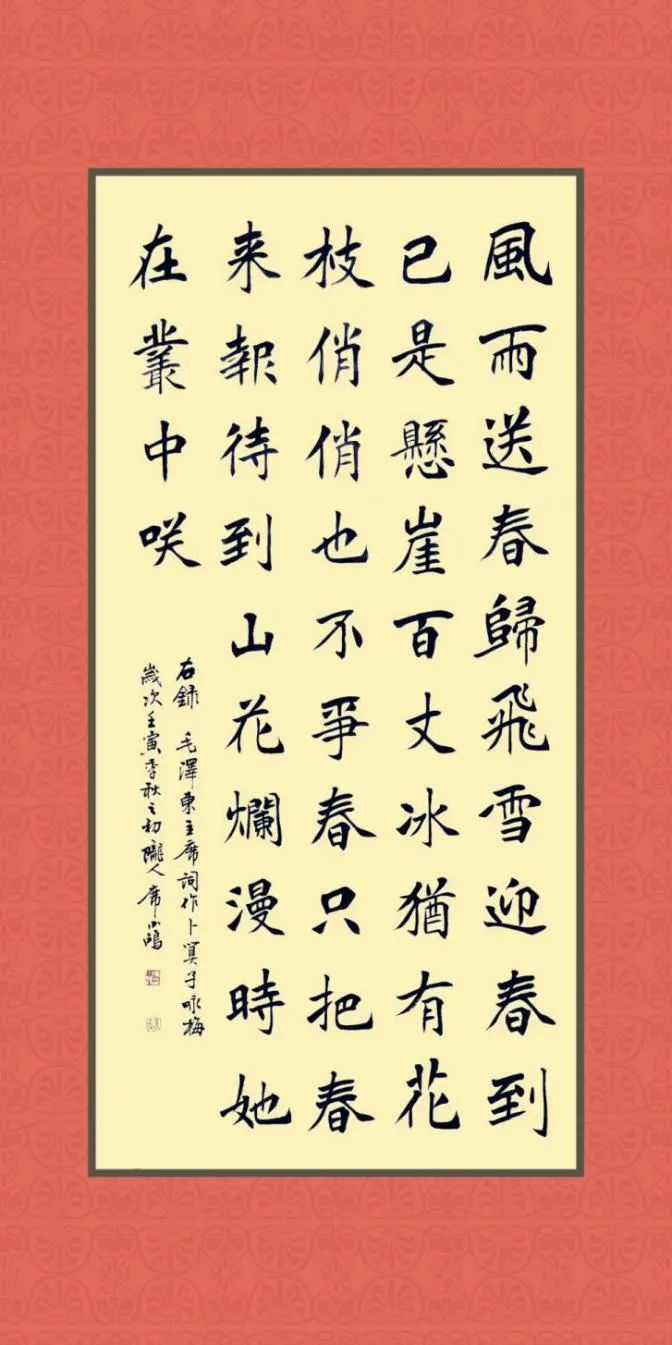 風雨送春歸飛雪迎春到
已是懸崖百丈冰猶有花
枝俏俏也不爭春只把春
来報待到山花爛漫時她
在叢中咲
右録毛澤東主席詞作卜算子咏梅
歲次壬寅季秋之初隴人席小鷗